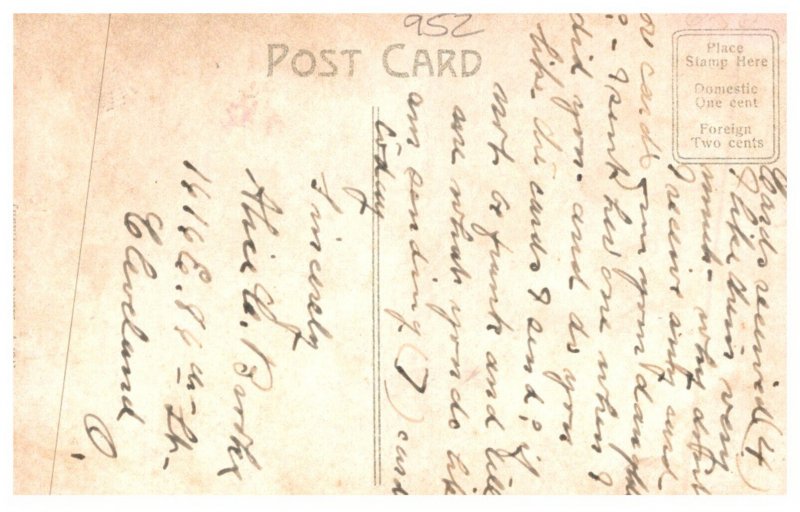 952
POST CARD
Place
Stamp Here
Domestic
One cent
Foreign
Two cents
Cards received (4
I like them very
much - why don't
I receive any sun-
or cards from your daugh
? - I sent her one when I
did you - and do you
like the cards I send? if
not a frank and tell
me what you do lik
am sending (7) card
today
Sincerely
Alice
1616 E. 86 th St-
Cleveland
O.